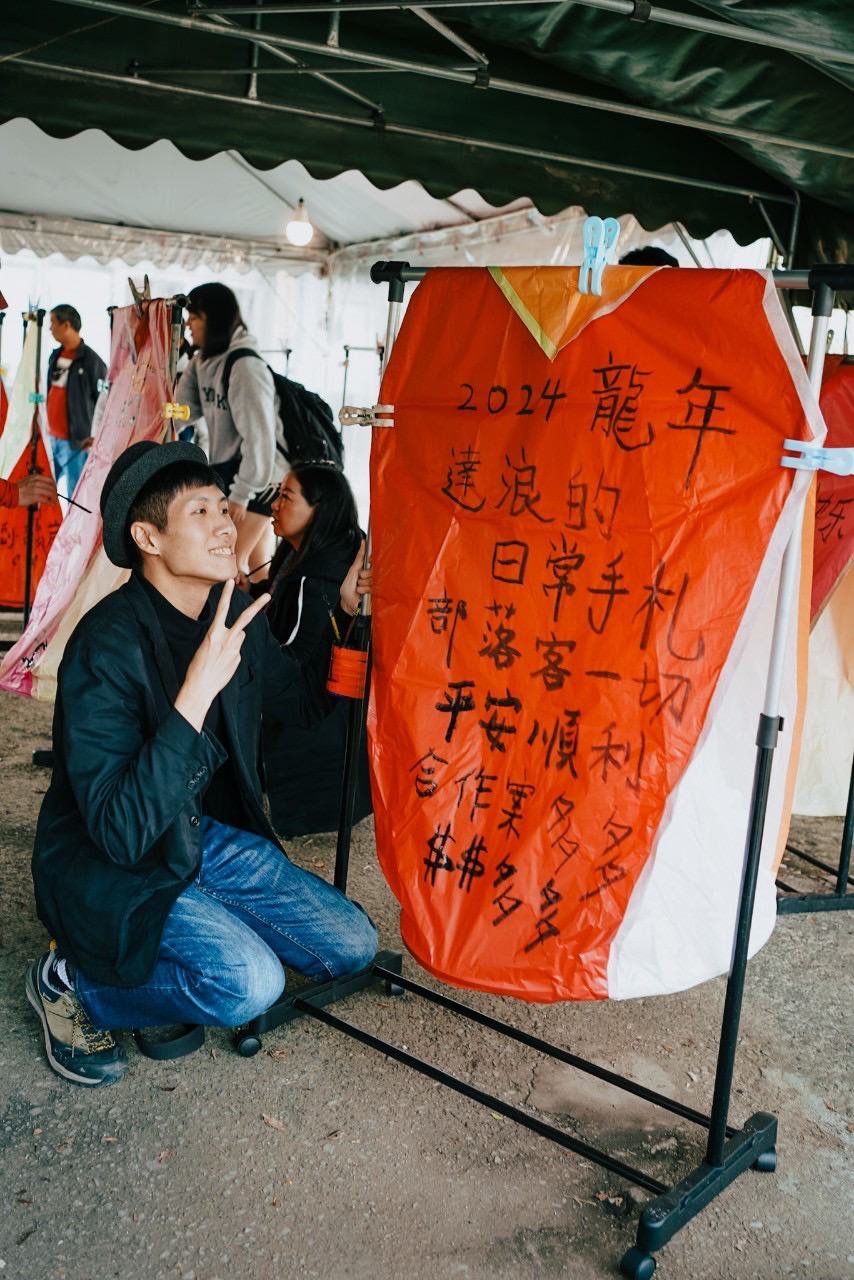 2024 龍年
達浪的
日常手札
部落客一切
平安順利
合作案多多
$$多多